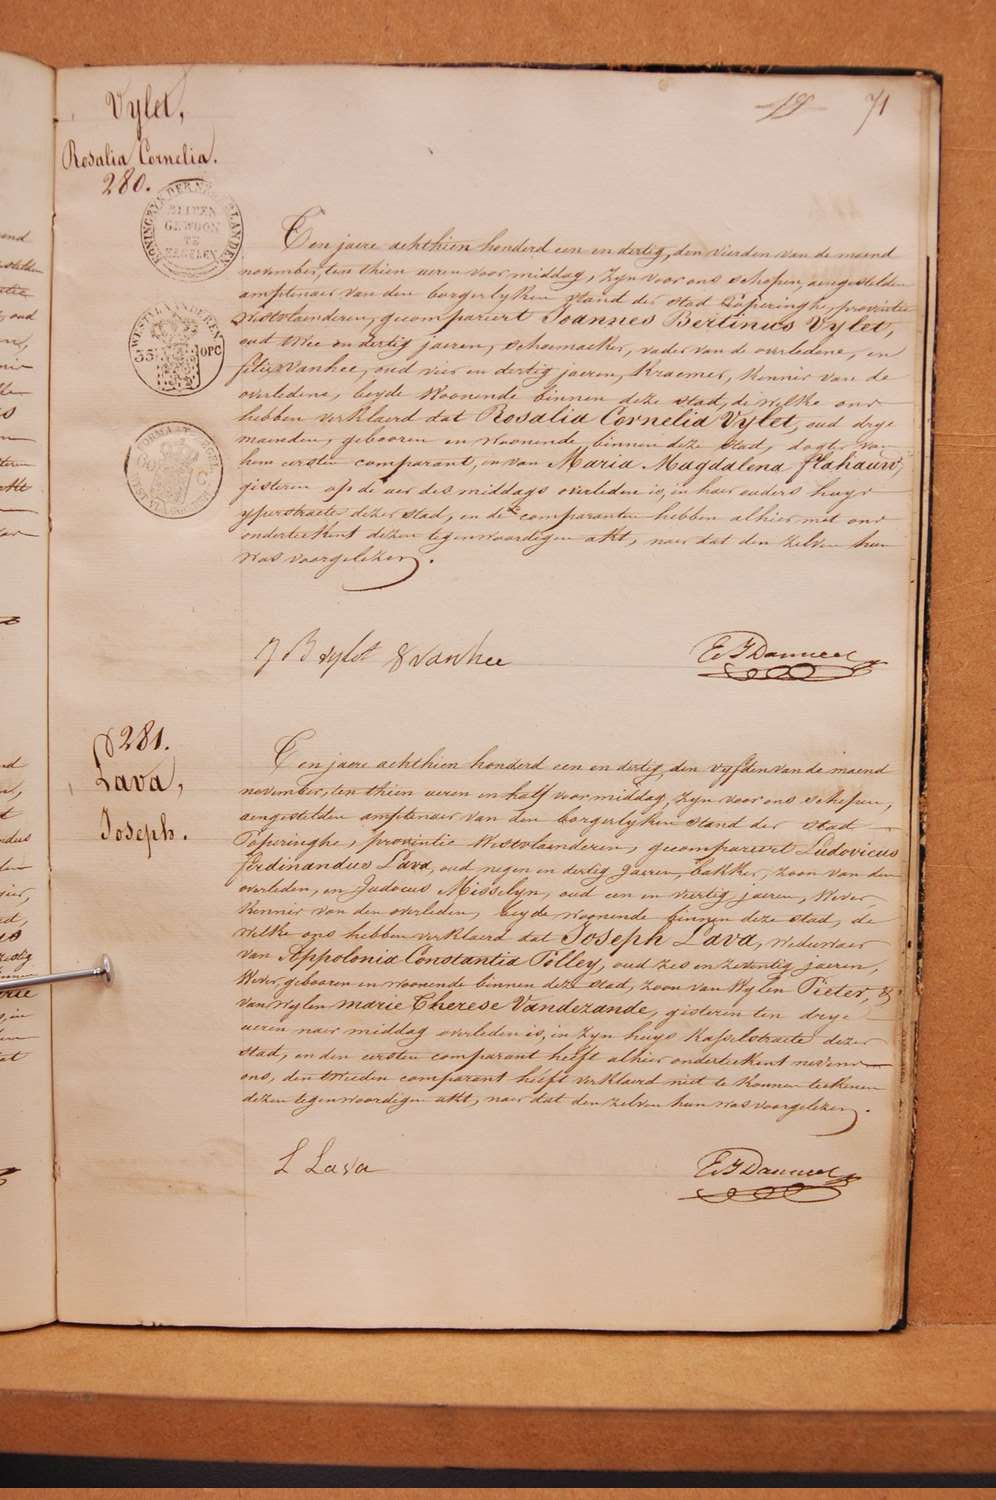 18 71
Vylet,
Rosalia Cornelia.
280.
KONINGRYK DER NEDERLANDEN
BUITEN
GEWOON
TE
ZEGELEN
WESTVLAANDEREN
35 OPC
Ten jaere achthien honderd een en dertig, den vierden van de maend
november, ten thien ueren voor middag, zyn voor ons schepen, aengestelden
amptenaer van den borgerlyken stand der stad Poperinghe, provintie
Westvlaenderen, gecompareert Joannes Bertinus Vylet,
oud twee en dertig jaeren, schoemaeker, vader van de overledene, en
felix Vanhee, oud vier en dertig jaeren, Kraemer, kennis van de
overledene, beyde woonende binnen deze stad, de welke ons
hebben verklaerd dat Rosalia Cornelia Vylet, oud drye
maenden, gebooren en woonende binnen deze stad, dogter van
hem eersten comparant, en van Maria Magdalena flahauw,
gisteren op de uer des middags overleden is, in haer ouders huys
yperstraete dezer stad, en de comparanten hebben alhier met ons
onderteekent dezen tegenwoordigen akt, naer dat den zelven hun
was voorgelezen.
J B vylet f vanhee
281.
Lava,
Joseph.
Ten jaere achthien honderd een en dertig, den vyfden van de maend
november, ten thien ueren en half voor middag, zyn voor ons schepen,
aengestelden amptenaer van den borgerlyken stand der stad
Poperinghe, provintie Westvlaenderen, gecompareert Ludovicus
ferdinandus Lava, oud negen en dertig jaeren, bakker, zoon van den
overleden, en Judocus Misselyn, oud een en viertig jaeren, Wever,
kennis van den overleden, beyde woonende binnen deze stad, de
welke ons hebben verklaerd dat Joseph Lava, weduwaer
van Appolonia Constantia Polley, oud zes en zeventig jaeren,
Wever, gebooren en woonende binnen deze stad, zoon van Wylen Pieter, &
van Wylen marie Therese Vandezande, gisteren ten drye
ueren naer middag overleden is, in zyn huys Kapelstraete dezer
stad, en den eersten comparant heeft alhier onderteekent nevens
ons, den tweeden comparant heeft verklaerd niet te konnen teekenen
dezen tegenwoordigen akt, naer dat den zelven hun was voorgelezen.
L Lava